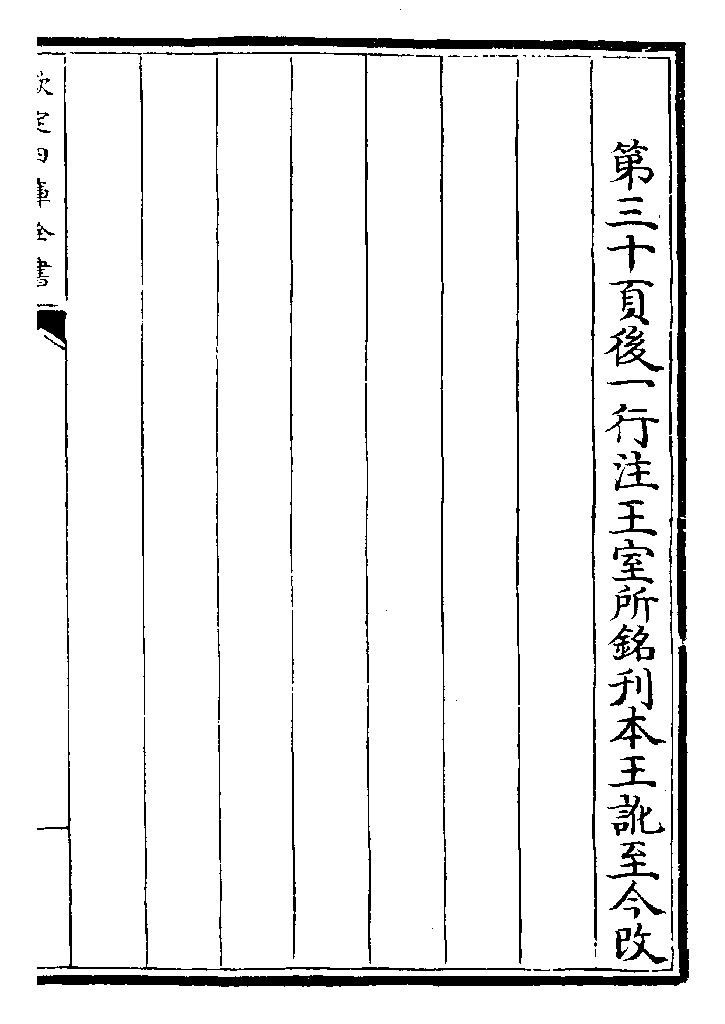 第三十頁後一行注王室所銘刋本王訛至今改
欽定四庫全書